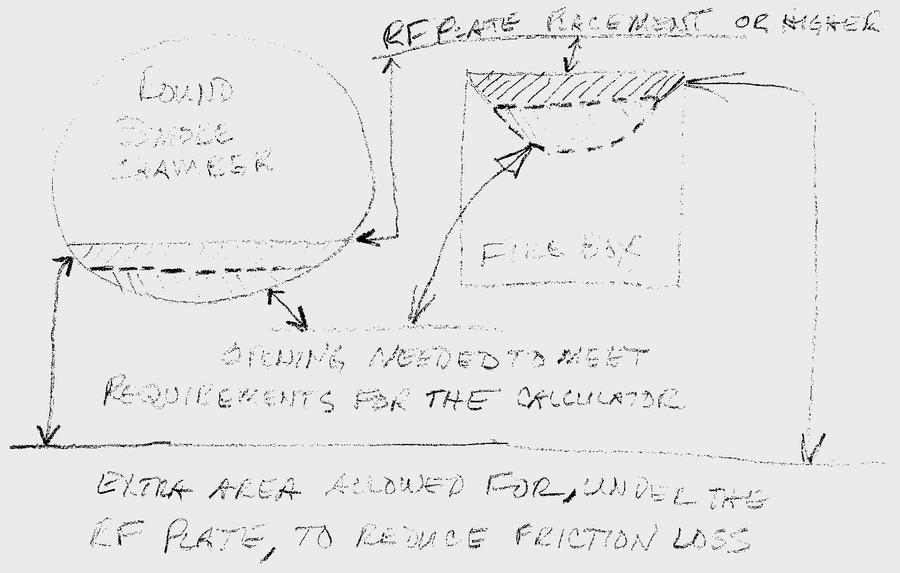 RF PLATE PLACEMENT OR HIGHER
ROUND
SMOKE
CHAMBER
FIRE BOX
OPENING NEEDED TO MEET
REQUIREMENTS FOR THE CALCULATOR
EXTRA AREA ALLOWED FOR, UNDER THE
RF PLATE, TO REDUCE FRICTION LOSS